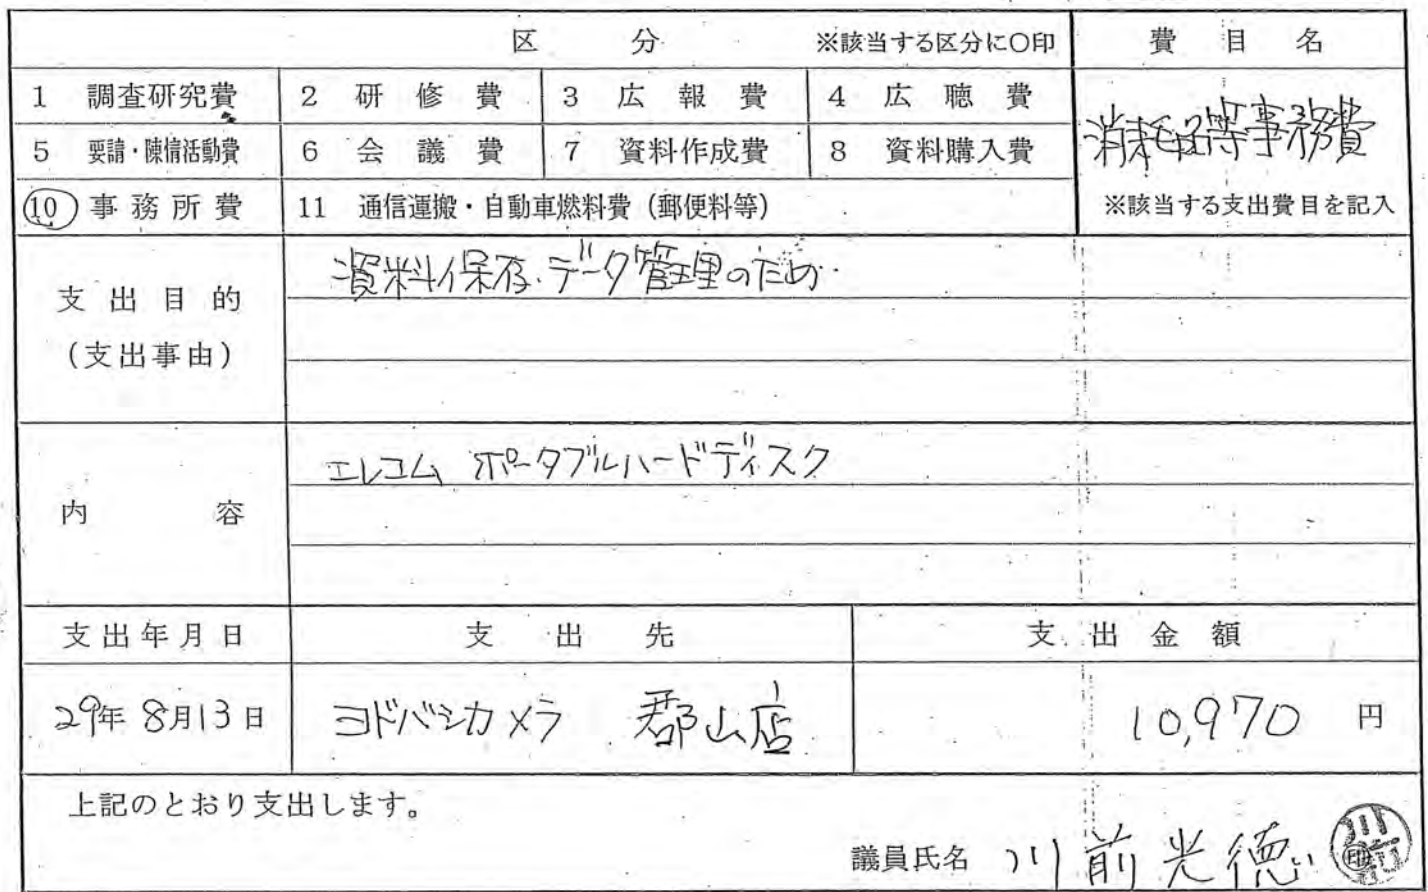 区 分 ※該当する区分に○印 費目名
1 調査研究費 2 研修費 3 広報費 4 広聴費
消耗品等事務費
5 要請・陳情活動費 6 会議費 7 資料作成費 8 資料購入費
10 事務所費 11 通信運搬・自動車燃料費(郵便料等) ※該当する支出費目を記入
資料保存・データ管理のため
支出目的
(支出事由)
エレコム ポータブルハードディスク
内容
支出年月日 支出先 支出金額
29年8月13日 ヨドバシカメラ 郡山店 10,970 円
上記のとおり支出します。
議員氏名 川前光徳 川前 印